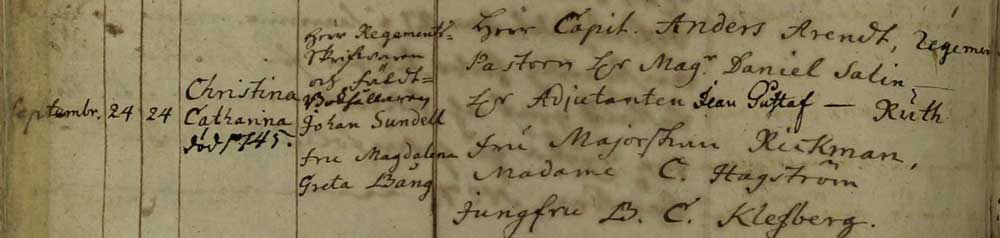 Septembr. 24 24
Christina
Catharina
död 1745.
Herr Regements=
Skrifvaren
och fäldt=
Bokhållaren
Johan Sundell
fru Magdalena
Greta Bång
Herr Capit. Anders Arendt, Regemen
Pastorn Hr Magr Daniel Salin,
Hr Adjutanten Jean Gustaf — Rüth
fru Majorskan Rickman,
Madame C. Hagström
Jungfru B. C. Klefberg.